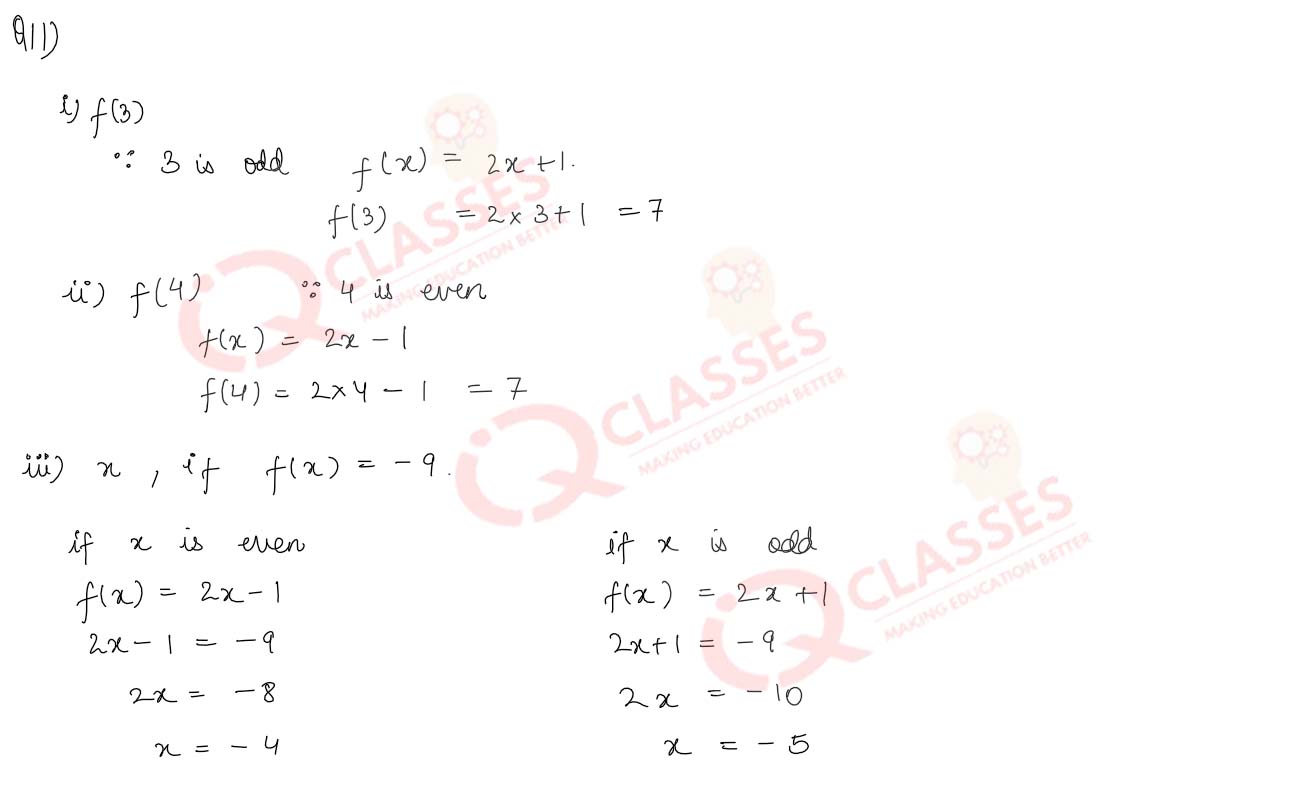 Q11)
i) f(3)
∵ 3 is odd f(x) = 2x + 1.
f(3) = 2 × 3 + 1 = 7
ii) f(4) ∵ 4 is even
f(x) = 2x - 1
f(4) = 2 × 4 - 1 = 7
iii) x , if f(x) = -9.
if x is even
f(x) = 2x - 1
2x - 1 = -9
2x = -8
x = -4
if x is odd
f(x) = 2x + 1
2x + 1 = -9
2x = -10
x = -5
iQ CLASSES
MAKING EDUCATION BETTER
iQ CLASSES
MAKING EDUCATION BETTER
iQ CLASSES
MAKING EDUCATION BETTER